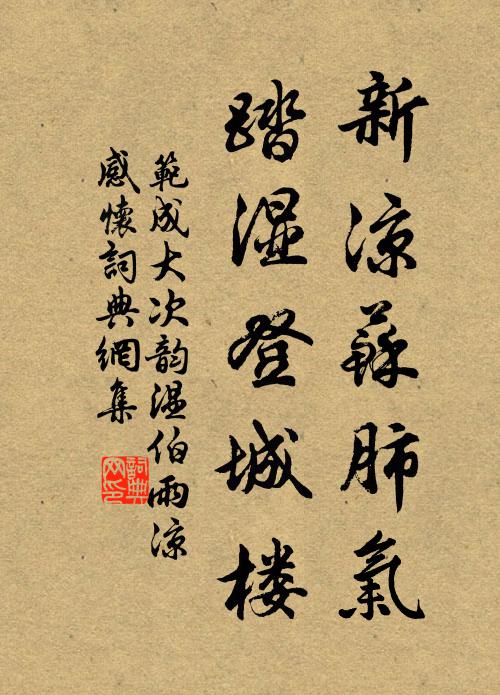 新涼蘇肺氣
踏湿登城楼
範成大次韵温伯雨涼
感懷詞典網集
詞典
网印